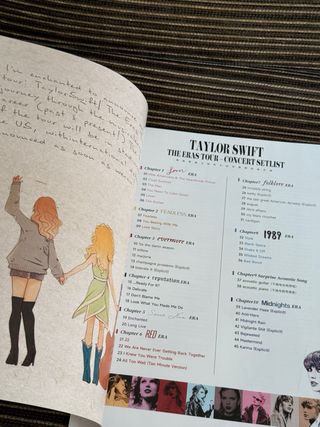 I'm enchanted to
tour: Taylor Swift | The E
journey through the
career (past & present!)
of the tour will be
US, with internat
nounced as soon as we
TAYLOR SWIFT
THE ERAS TOUR - CONCERT SETLIST
Chapter 1 Lover ERA
03 The Man
04 You Need To Calm Down
05 Lover
06 The Archer
Chapter 2 FEARLESS ERA
07 Fearless
08 You Belong With Me
09 Love Story
Chapter 3 evermore ERA
10 'tis the damn season
11 willow
12 marjorie
13 champagne problems (Explicit)
14 tolerate it (Explicit)
Chapter 4 reputation ERA
15 ...Ready For It?
16 Delicate
17 Don't Blame Me
18 Look What You Made Me Do
Chapter 5 Speak Now ERA
19 Enchanted
20 Long Live
Chapter 6 RED ERA
21 22
22 We Are Never Ever Getting Back Together
23 I Knew You Were Trouble
24 All Too Well (Ten Minute Version)
Chapter 7 folklore ERA
25 invisible string
26 betty (Explicit)
27 the last great american dynasty (Explicit)
28 august
29 illicit affairs
30 my tears ricochet
31 cardigan
Chapter 8 1989 ERA
32 Style
33 Blank Space
34 Shake It Off
35 Wildest Dreams
36 Bad Blood
Chapter 9 Surprise Acoustic Song
37 acoustic guitar
38 acoustic piano
Chapter 10 Midnights ERA
39 Lavender Haze (Explicit)
40 Anti-Hero
41 Midnight Rain
42 Vigilante Shit (Explicit)
43 Bejeweled
44 Mastermind
45 Karma (Explicit)